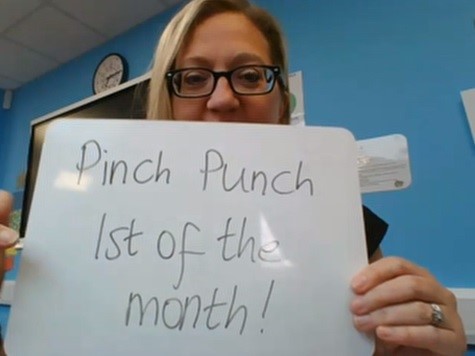 Pinch Punch
1st of the
month!